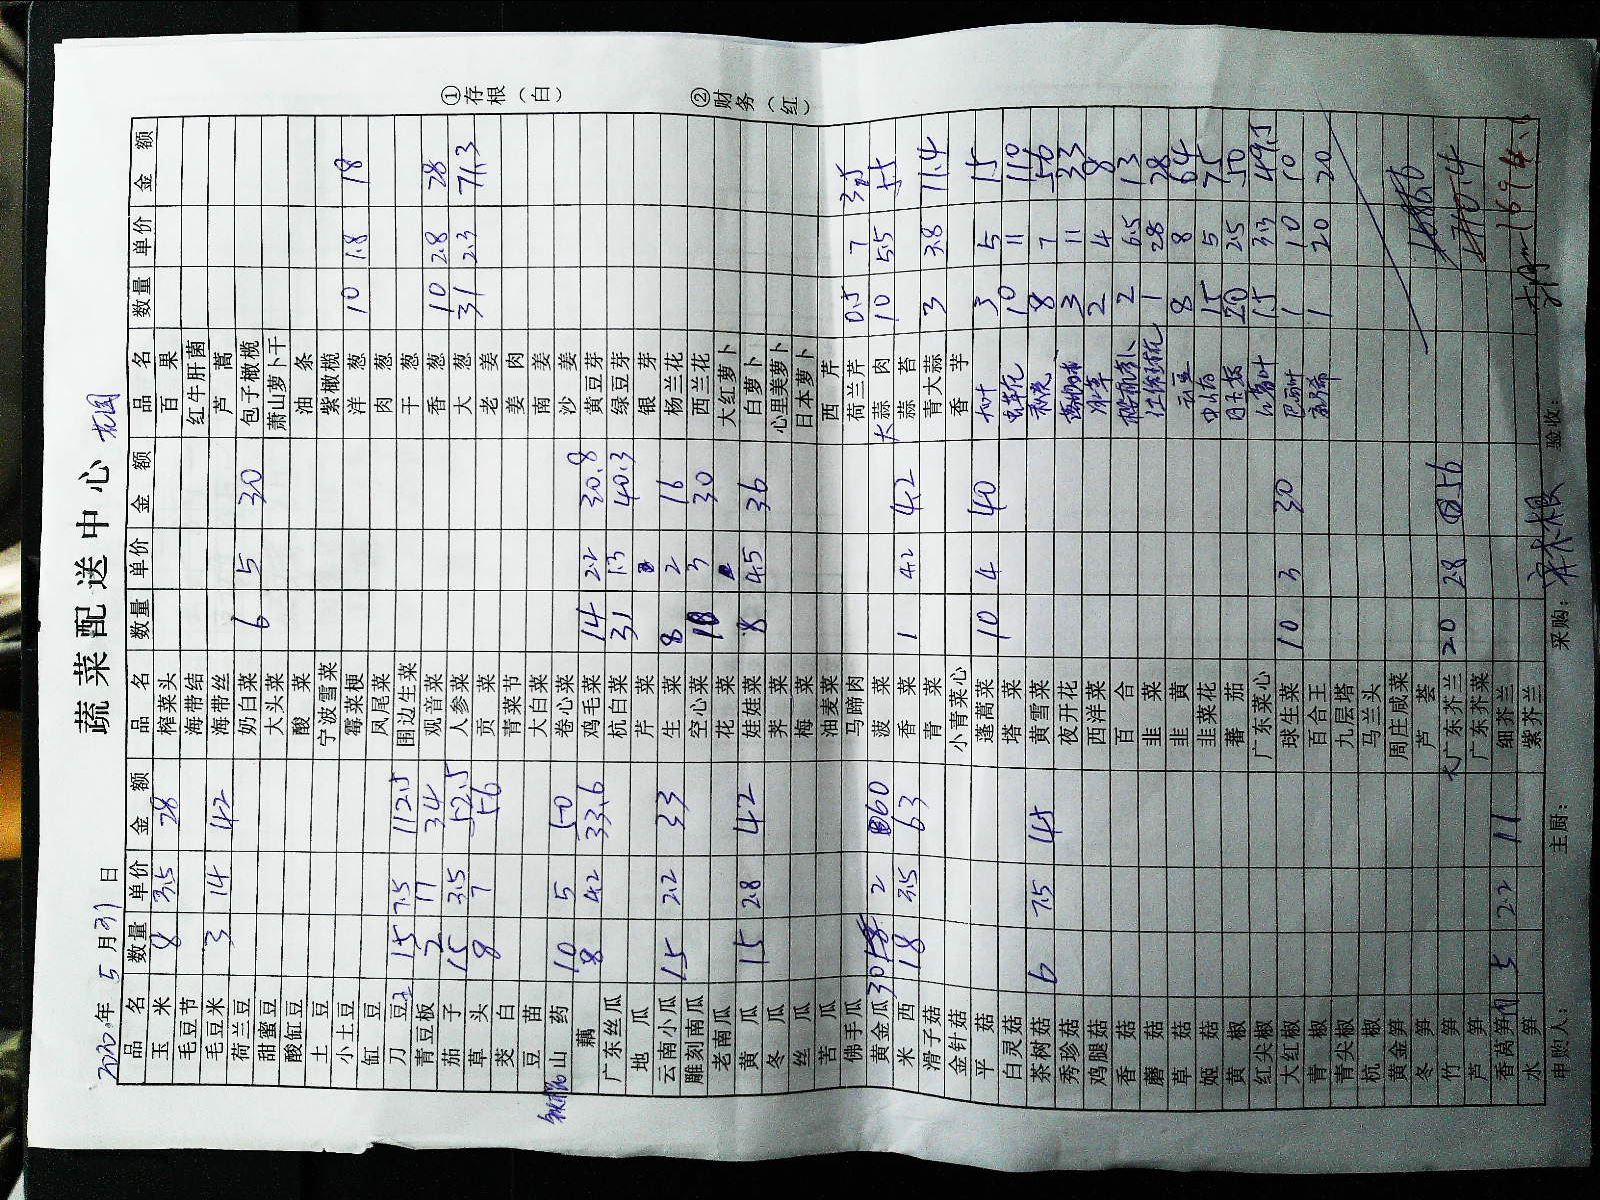 蔬菜配送中心
2020年5月31日
品名 数量 单价 金额 品名 数量 单价 金额 品名 数量 单价 金额
玉米 8 3.5 28 榨菜头 百果
毛豆节 海带结 红牛肝菌
毛豆米 3 14 42 海带丝 芦蒿
荷兰豆 奶白菜 6 5 30 包子橄榄
甜蜜豆 大头菜 萧山萝卜干
酸缸豆 酸菜 油条
土豆 宁波雪菜 紫橄榄
小土豆 霉菜梗 洋葱 10 1.8 18
缸豆 凤尾菜 肉葱
刀豆 15 7.5 112.5 围边生菜 干葱
青豆板 2 17 34 观音菜 香葱 10 2.8 28
茄子 15 3.5 52.5 人参菜 大葱 31 2.3 71.3
草头 8 7 56 贡菜 老姜
茭白 青菜节 姜肉
豆苗 大白菜 南姜
山药 10 5 50 卷心菜 沙姜
藕 8 4.2 33.6 鸡毛菜 14 2.2 30.8 黄豆芽
广东丝瓜 杭白菜 31 1.3 40.3 绿豆芽
地瓜 芹菜 银芽
云南小瓜 15 2.2 33 生菜 8 2 16 杨兰花
雕刻南瓜 空心菜 10 3 30 西兰花
老南瓜 花菜 大红萝卜
黄瓜 15 2.8 42 娃娃菜 8 4.5 36 白萝卜
冬瓜 荠菜 心里美萝卜
丝瓜 梅菜 日本萝卜
苦瓜 油麦菜 西芹
佛手瓜 马蹄肉 荷兰芹 0.5 7 3.5
黄金瓜 30 2 60 菠菜 大蒜肉 10 5.5 55
米西 18 3.5 63 香菜 1 42 42 蒜苔
滑子菇 青菜 青大蒜 3 3.8 11.4
金针菇 小青菜心 香芋
平菇 蓬蒿菜 10 4 40 3 5 15
白灵菇 塔菜 虫草花 10 11 110
茶树菇 6 7.5 45 黄雪菜 秋葵 8 7 56
秀珍菇 夜开花 3 11 33
鸡腿菇 西洋菜 冰草 2 4 8
香菇 百合 2 6.5 13
蘑菇 韭菜 1 28 28
草菇 韭黄 8 8 64
姬菇 韭菜花 15 5 75
黄椒 蕃茄 20 2.5 50
红尖椒 广东菜心 15 3.3 49.5
大红椒 球生菜 10 3 30 1 10 10
青椒 百合王 1 20 20
青尖椒 九层塔
杭椒 马兰头
黄金笋 周庄咸菜
冬笋 芦荟
竹笋 大广东芥兰 20 2.8 56
芦笋 广东芥菜
香莴笋 5 2.2 11 细芥兰
水笋 紫芥兰
申购人： 主厨： 采购： 验收：
①存根（白）
②财务（红）